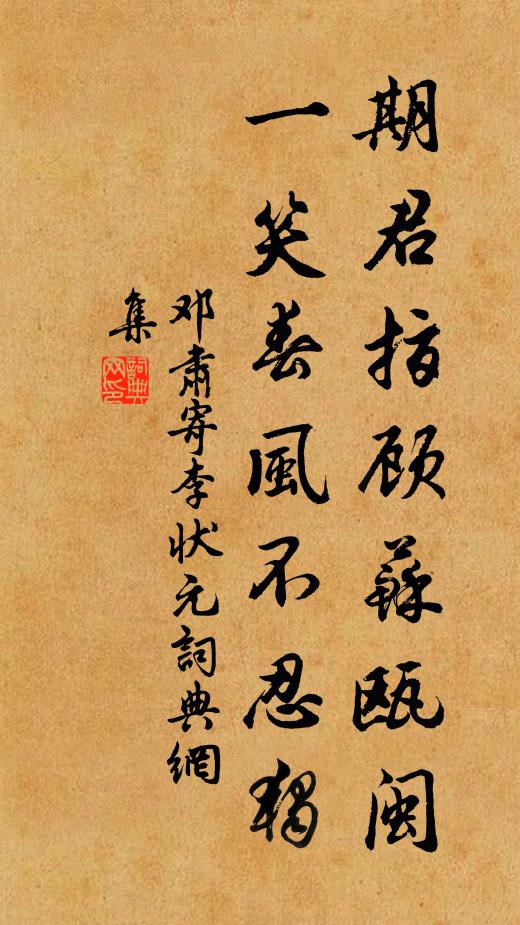 期君指顾蘇瓯闽
一笑春風不忍獨
邓肃寄李状元詞典網
集
詞典
网印